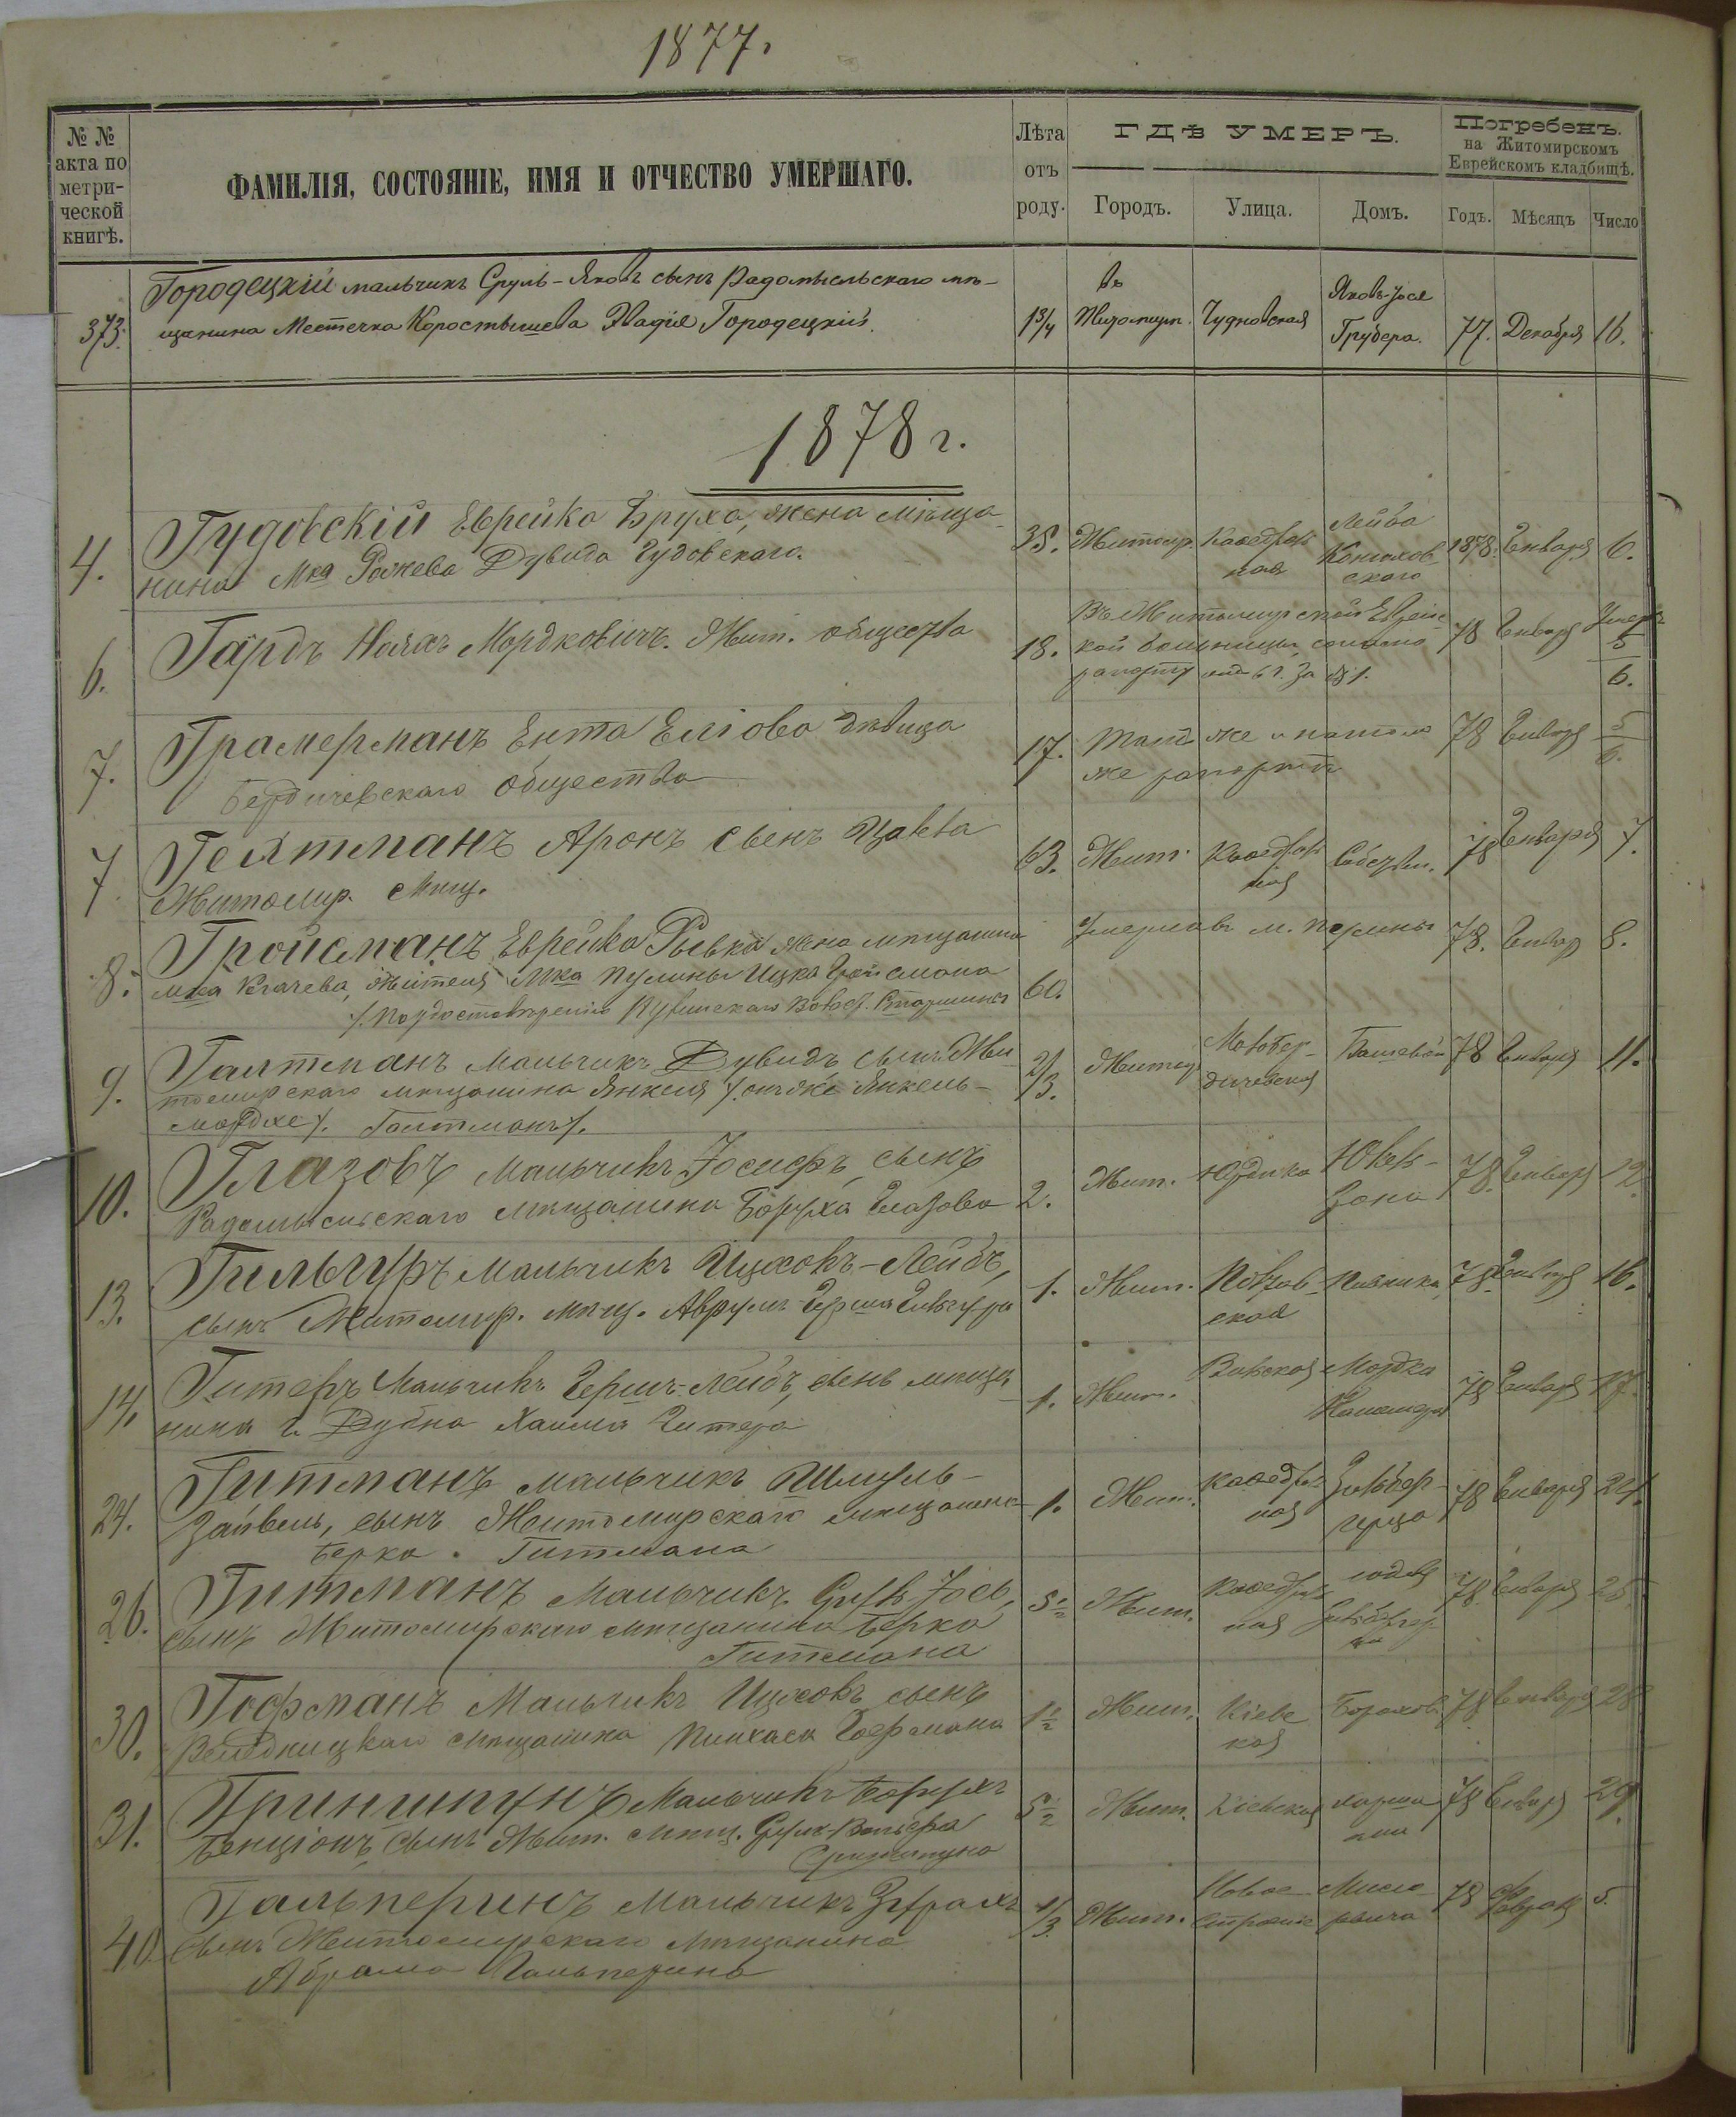 1877.
№ №
акта по
метри-
ческой
книгѣ.
ФАМИЛІЯ, СОСТОЯНІЕ, ИМЯ И ОТЧЕСТВО УМЕРШАГО.
Лѣта
отъ
роду.
ГДѢ УМЕРЪ.
Городъ.
Улица.
Домъ.
Погребенъ.
на Житомирскомъ
Еврейскомъ кладбищѣ.
Годъ.
Мѣсяцъ
Число
373.
Городецкій мальчикъ Сруль-Яковъ сынъ Радомысльскаго мѣ-
щанина Местечка Коростышева Городецкій.
1 3/4
въ
Житомир.
Чудновская
Яковъ-Іося
Грубера.
77.
Декабря
16.
1878 г.
4.
Гудовскій Еврейка Бруха, жена мѣща-
нина Мка Рожева Дувида Гудовскаго.
35.
Житомир.
Каѳедраль
ная
Лейба
скаго
1878.
Января
6.
6.
Гардъ Мордковичъ. Жит. общества
18.
Въ Житомирской Еврейс
кой больницы, согласно
рапорту отъ 6 г. за №1.
78
Января
5
6.
7.
Грамерманъ Ента Еліова дѣвица
Бердичевскаго общества
17.
Тамъ же и потому
же рапорту
78
Января
5
6.
7
Гехтманъ Аронъ сынъ
Житомир. мѣщ.
63.
Жит.
Каѳедраль
ная
Собствен.
78
Января
7.
8.
Гройсманъ Еврейка Рывка жена мѣщанина
мка жителя Мка Пулины Ицка Гройсмана
60.
Умерла въ м. Пулины
78.
Январ
8.
9.
Галтманъ Мальчикъ Дувидъ, сынъ Жи
томирскаго мѣщанина Янкеля /. онъ же Янкель-
мордхе /. Галтманъ /.
2/3.
Житом
Малобер-
дичевская
78
Января
11.
10.
Глазовъ Мальчикъ Іосифъ, сынъ
Радомысльскаго мѣщанина Боруха Глазова
2.
Жит.
Юридика
зона
78.
Января
12.
13.
Гильгуръ Мальчикъ Ицхокъ-Лейбъ,
сынъ Житомир. мѣщ. Аврумъ-Герша Гильгура
1.
Жит.
ская
78.
Января
16.
14.
Гитеръ Мальчикъ Гершъ-Лейбъ, сынъ мѣща
нина г. Дубна Хаима Гитера
1.
Жит.
Вильская
Мордка
78
Января
17.
24.
Гитманъ мальчикъ Шмуль-
Зайвель, сынъ Житомирскаго мѣщанина
Берка. Гитмана
1.
Жит.
Каѳедраль
ная
Зильбер-
герца
78
Января
24.
26.
Гитманъ Мальчикъ Сруль Іось,
сынъ Житомирскаго мѣщанина Берка
Гитмана
5 1/2
Жит.
Каѳедраль
ная
78.
Января
25.
30.
Гофманъ Мальчикъ Ицхокъ сынъ
Веледницкаго мѣщанина Пинхаса Гофмана
1 1/2
Жит.
Кіевс
кая
78
Января
28
31.
Гриншпунъ Мальчикъ Борухъ
Бенціонъ, сынъ Жит. мѣщ. Сруль-Вольфа
Гриншпуна
5 1/2
Жит.
Кіевская
78
Января
29.
40
Гальперинъ Мальчикъ
сынъ Житомирскаго мѣщанина
Абрама Гальперина
1/3.
Жит.
Новое
строеніе
78
Февраля
5.